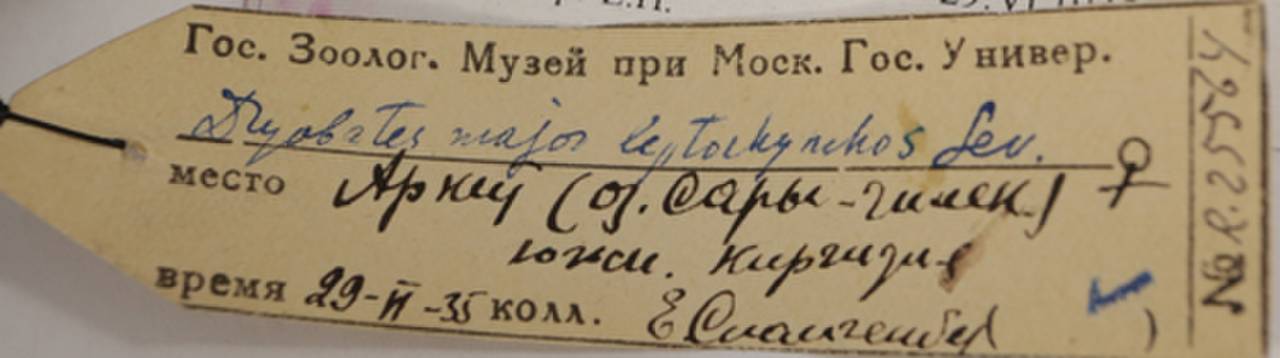 Гос. Зоолог. Музей при Моск. Гос. Универ.
Dryobates major leptorhynchos Sev.
место Аркит (оз. Сары-Чилек) ♀
южн. Киргизия
время 29-II-35 колл. Е Спангенберг